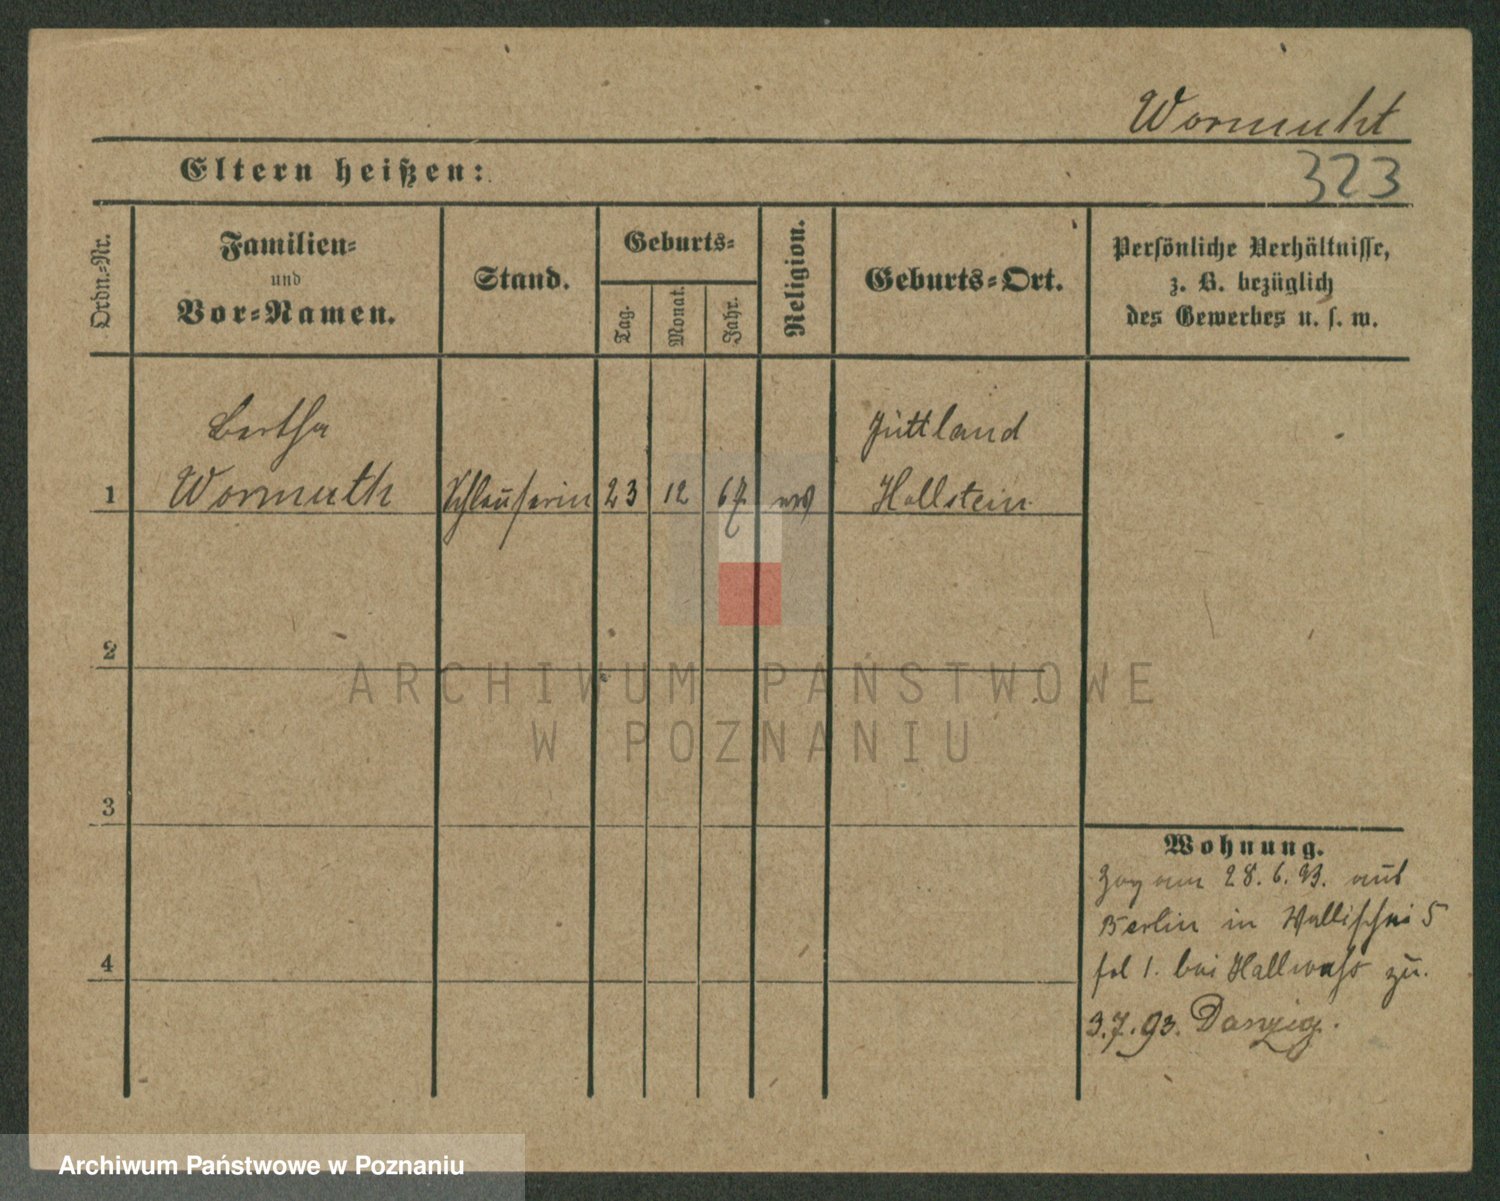 Wormuht
Eltern heißen:
323
Ordn.-Nr.
Familien-
und
Vor-Namen.
Stand.
Geburts-
Tag.
Monat.
Jahr.
Religion.
Geburts-Ort.
Persönliche Verhältnisse,
z. B. bezüglich
des Gewerbes u. s. w.
Bertha
Jüttland
1 Wormuth 23 12 67 Hollstein
2
ARCHIWUM PAŃSTWOWE
W POZNANIU
3
Wohnung.
Zog am 28. 6. 93. aus
Berlin in Wallischei 5
4
bei zu.
3.7.93. Danzig.
Archiwum Państwowe w Poznaniu